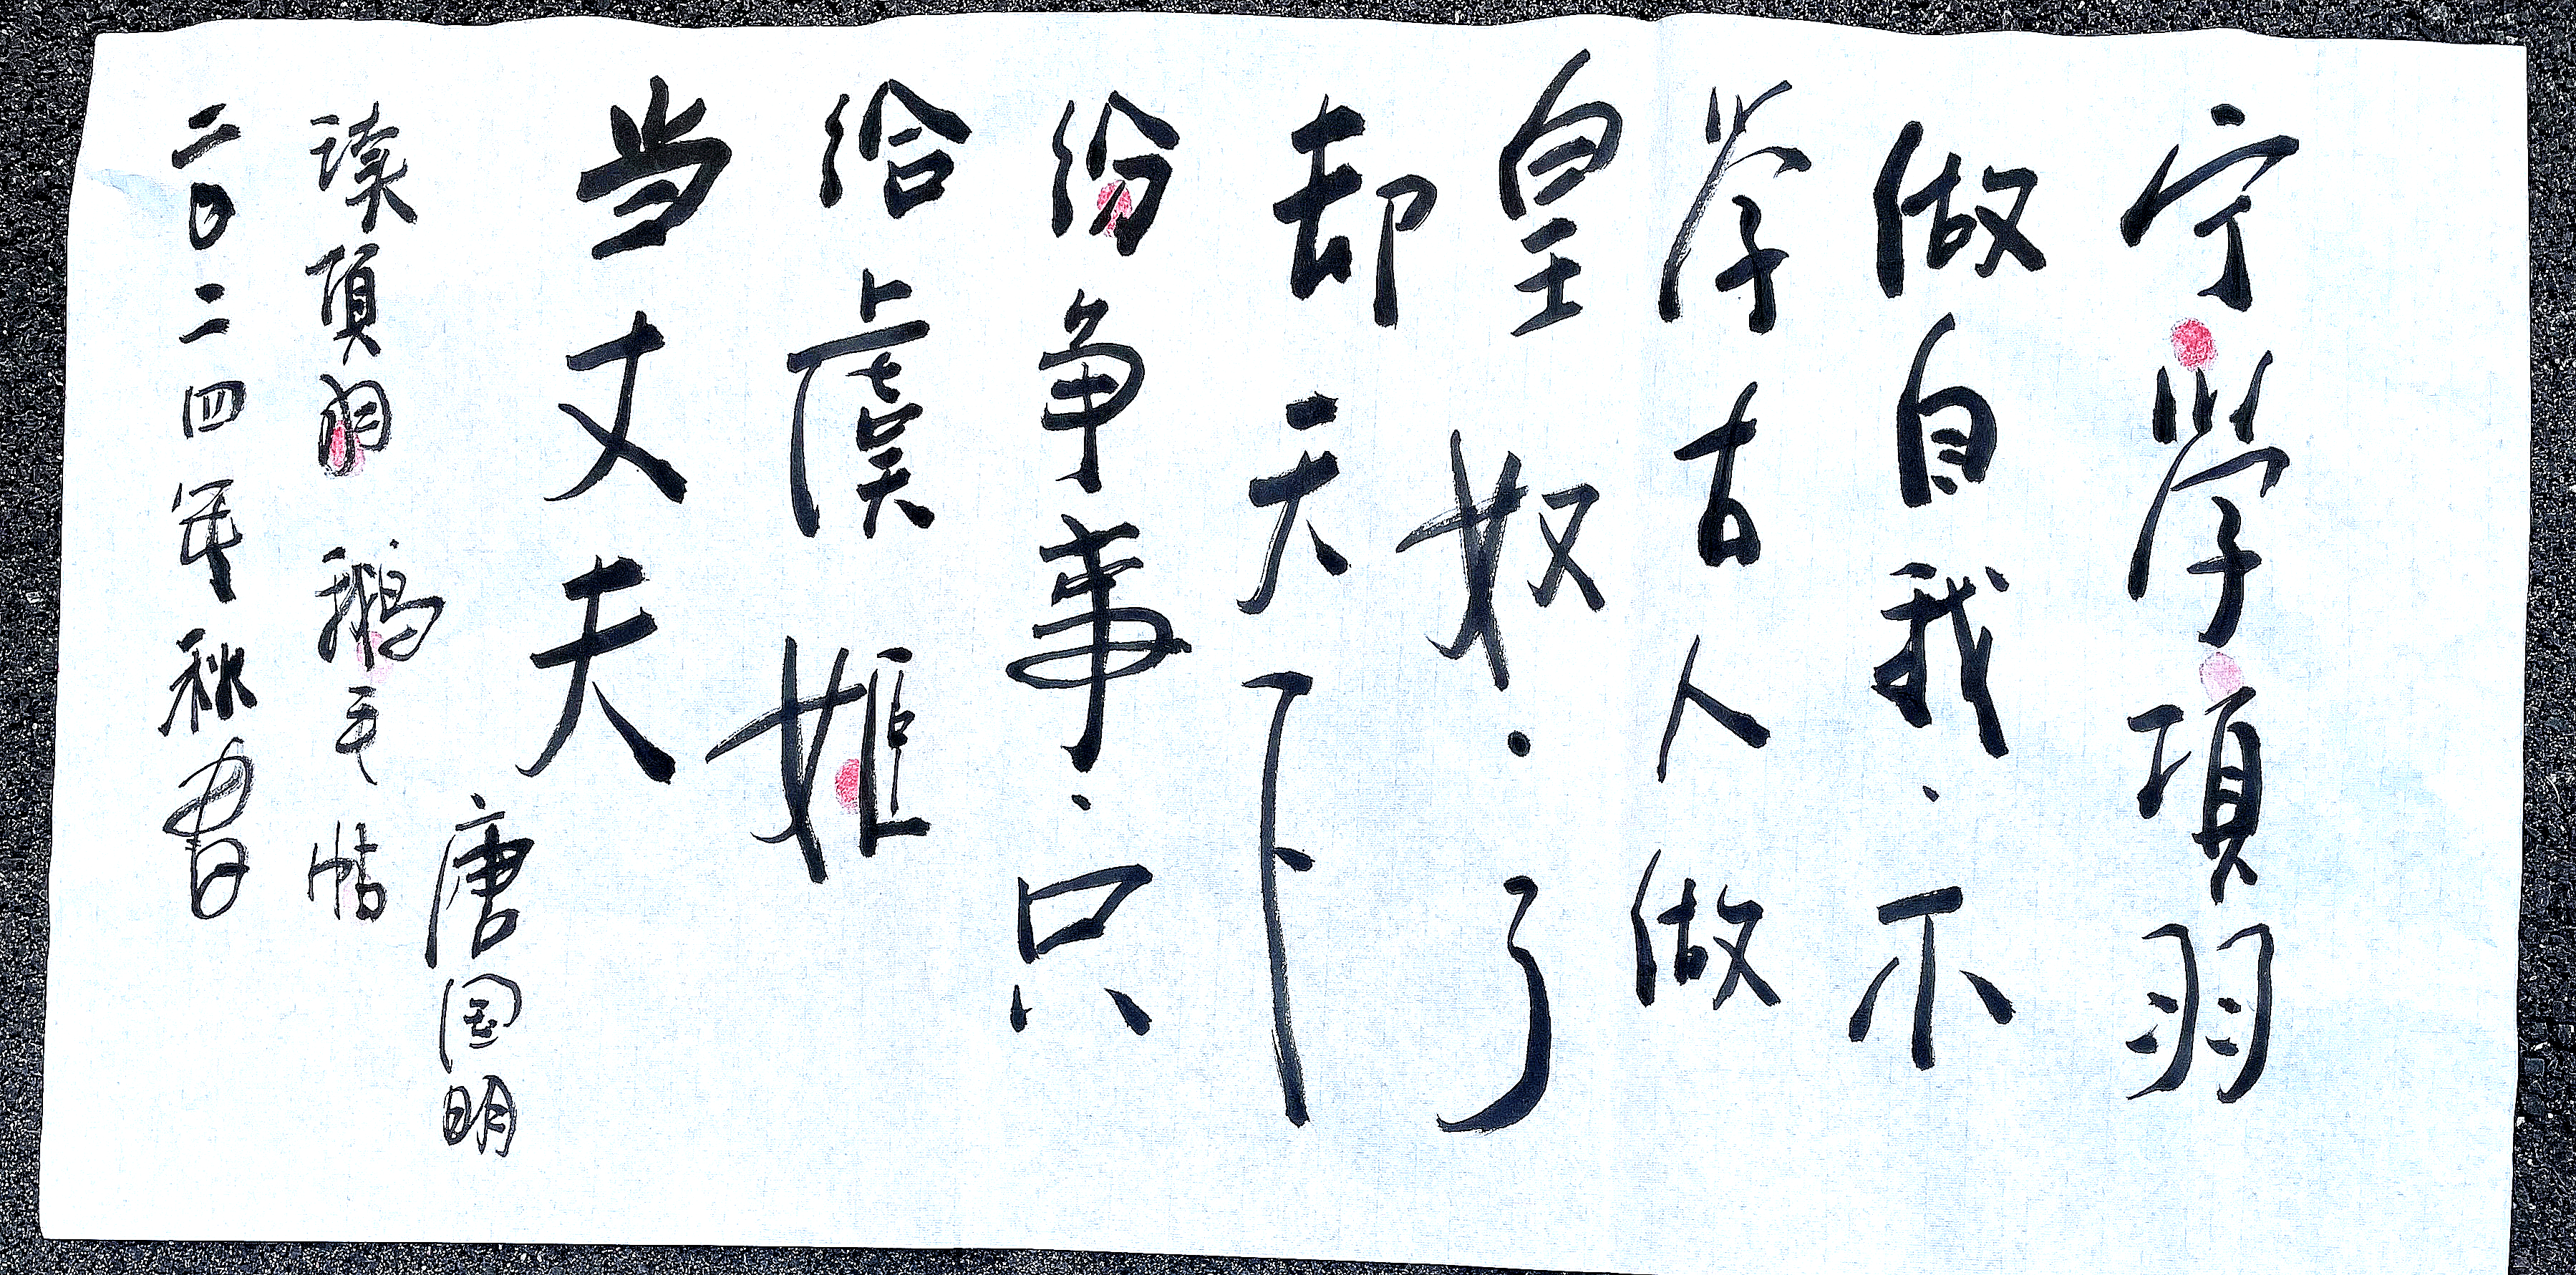 宁學項羽
做自我·不
学古人做
皇奴··了
却天下
纷争事·只
给虞姬
当丈夫
唐国明
读項羽鹅毛帖
二〇二四年秋書